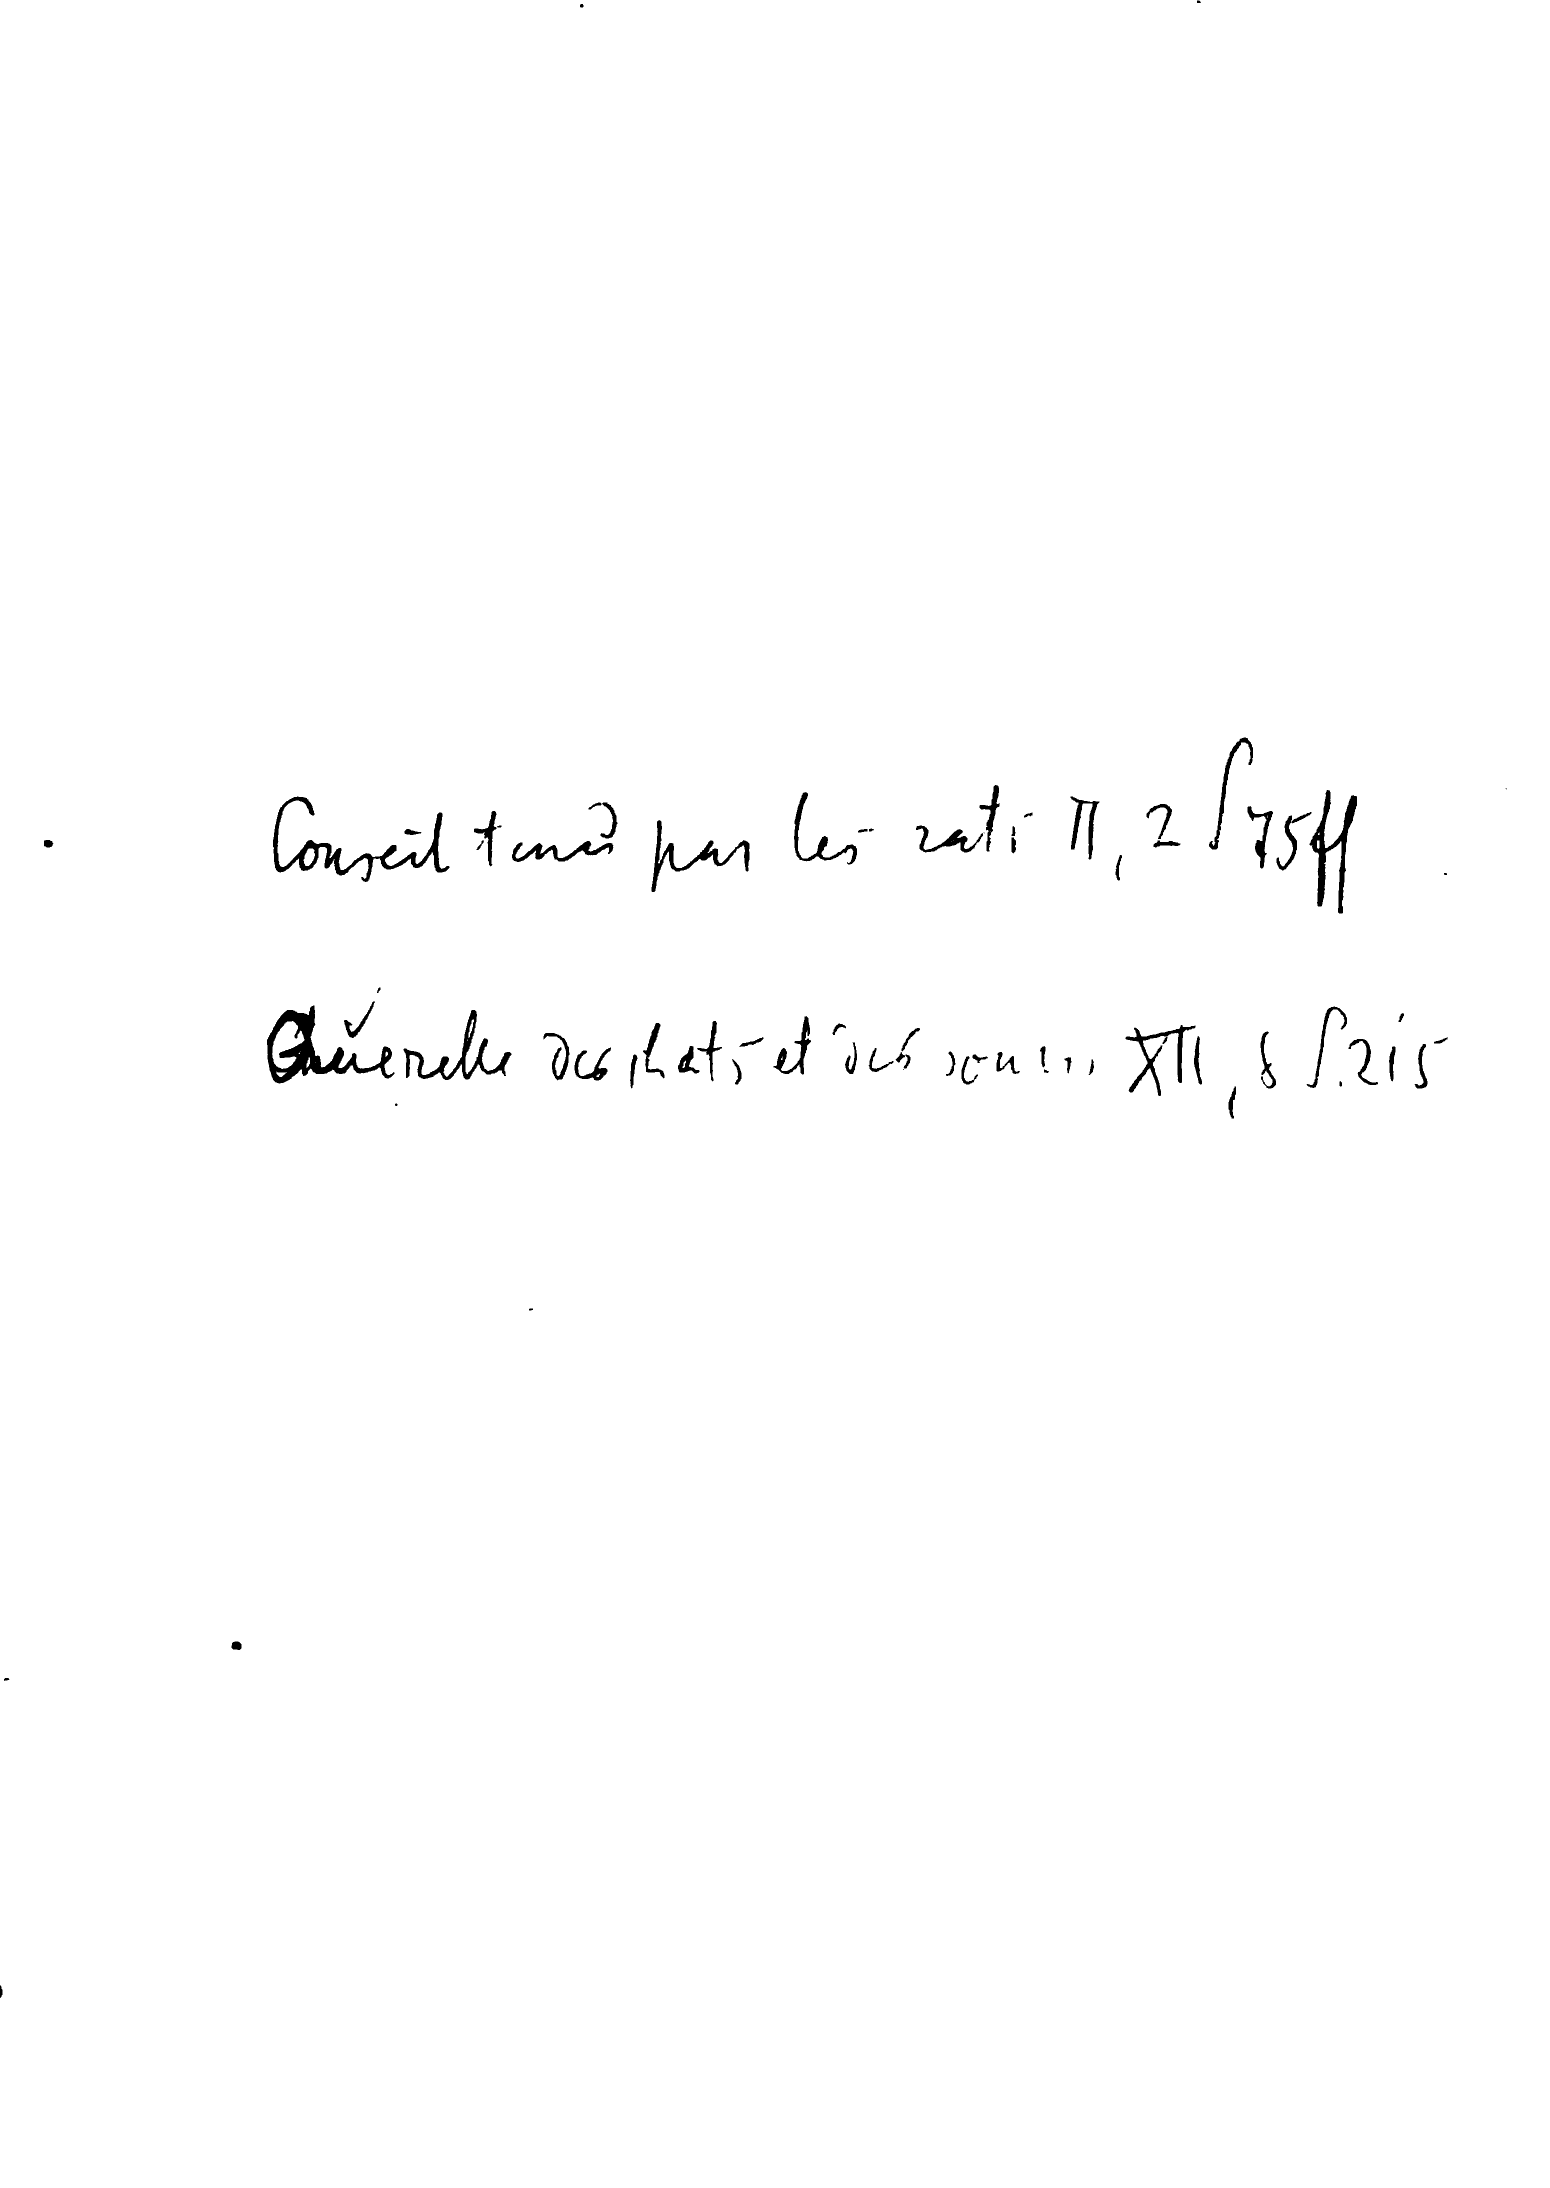 Conseil tenu par les rats II, 2 S 75ff
Querelle des chats et des souris XII, 8 S. 215